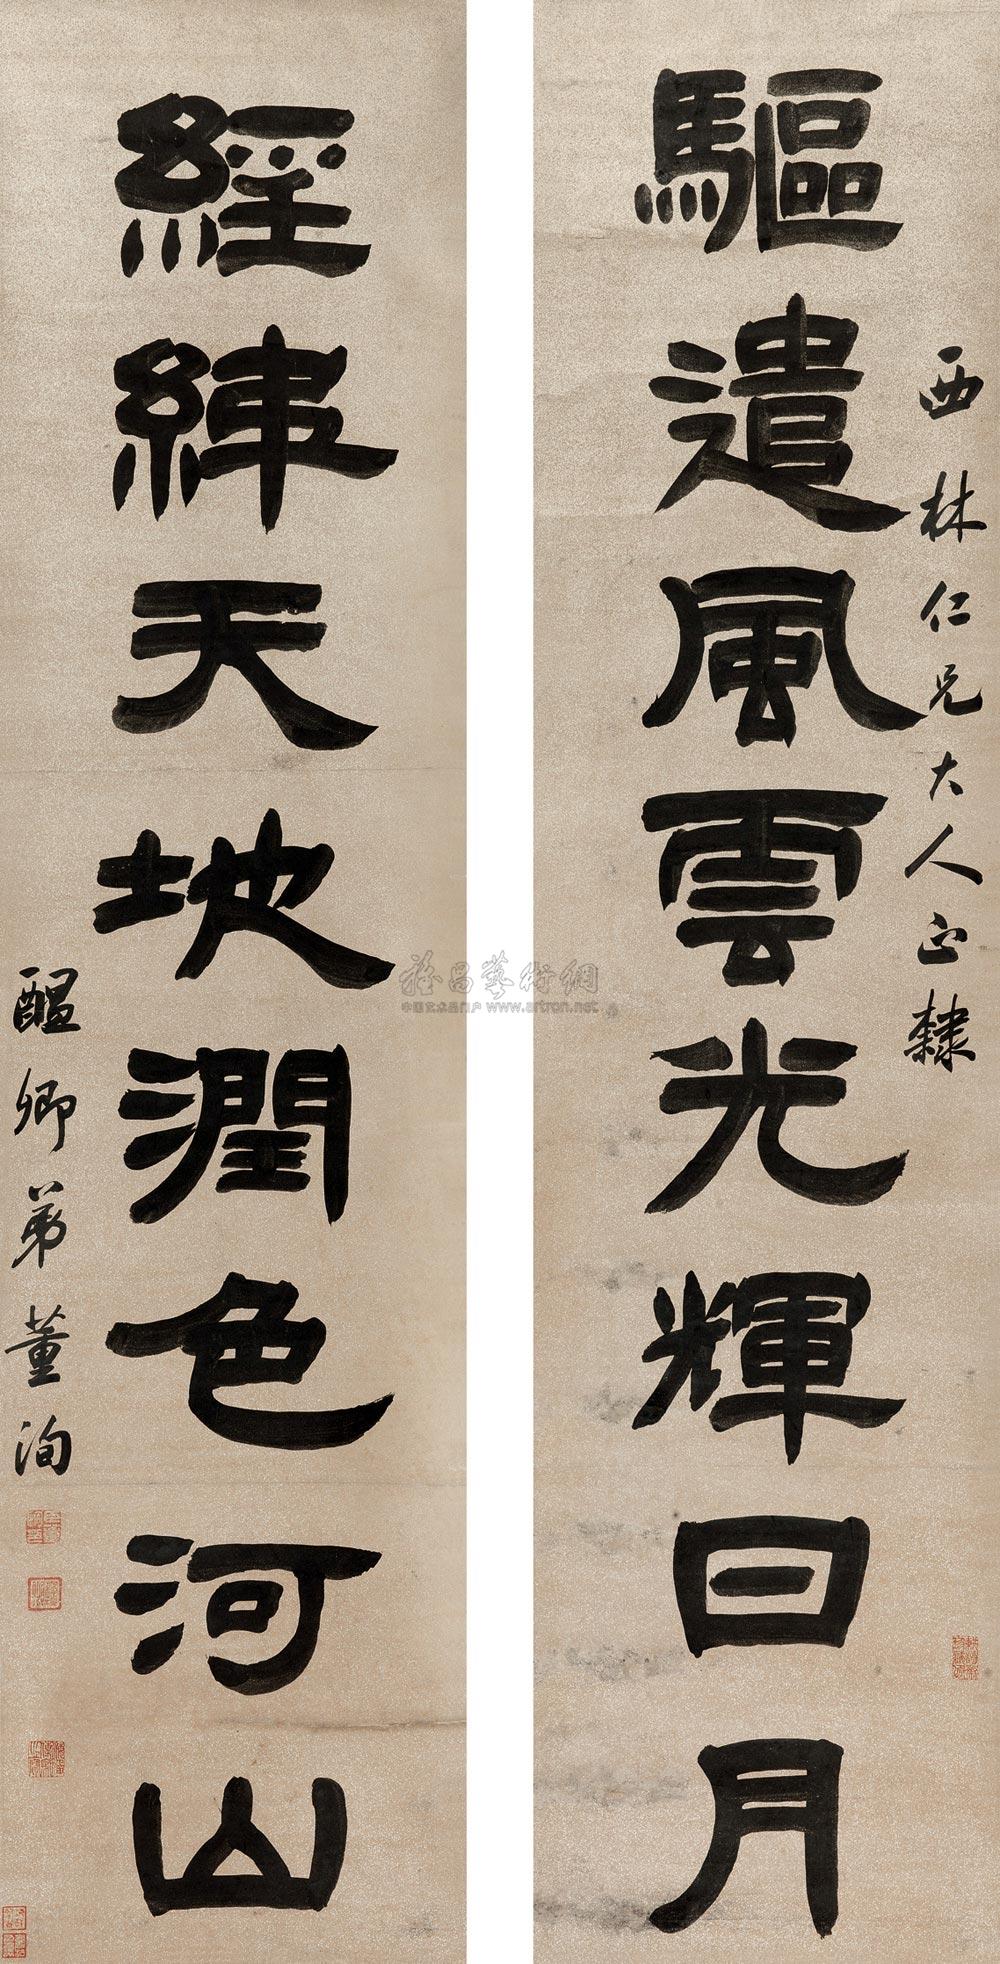 西林仁兄大人正隸
驅遣風雲光輝日月
經緯天地潤色河山
醖卿弟董洵
www.artron.net